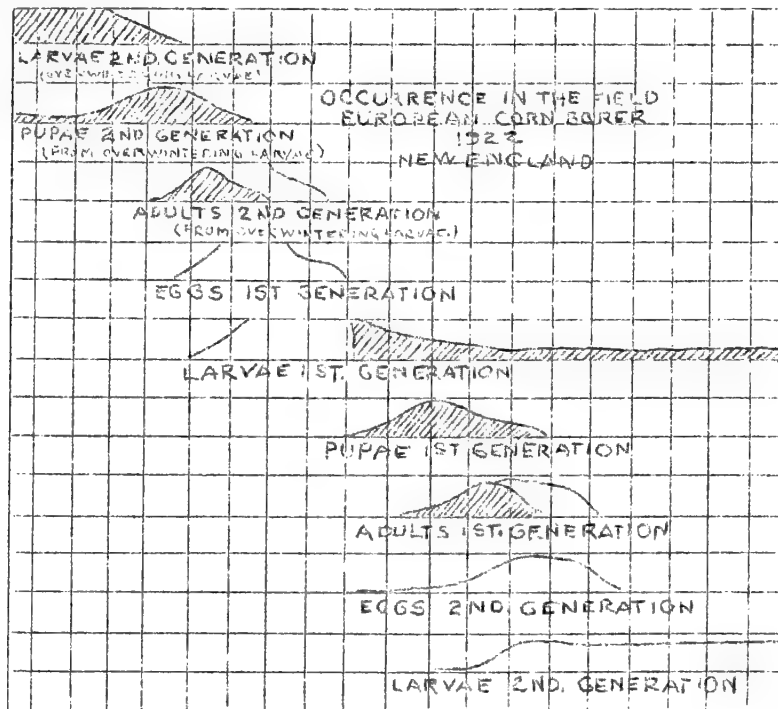 LARVAE 2ND. GENERATION
(OVERWINTERING LARVAE)
OCCURRENCE IN THE FIELD
EUROPEAN CORN BORER
1922
NEW ENGLAND
PUPAE 2ND GENERATION
(FROM OVERWINTERING LARVAE)
ADULTS 2ND GENERATION
(FROM OVERWINTERING LARVAE.)
EGGS 1ST GENERATION
LARVAE 1ST. GENERATION
PUPAE 1ST GENERATION
ADULTS 1ST. GENERATION
EGGS 2ND. GENERATION
LARVAE 2ND. GENERATION